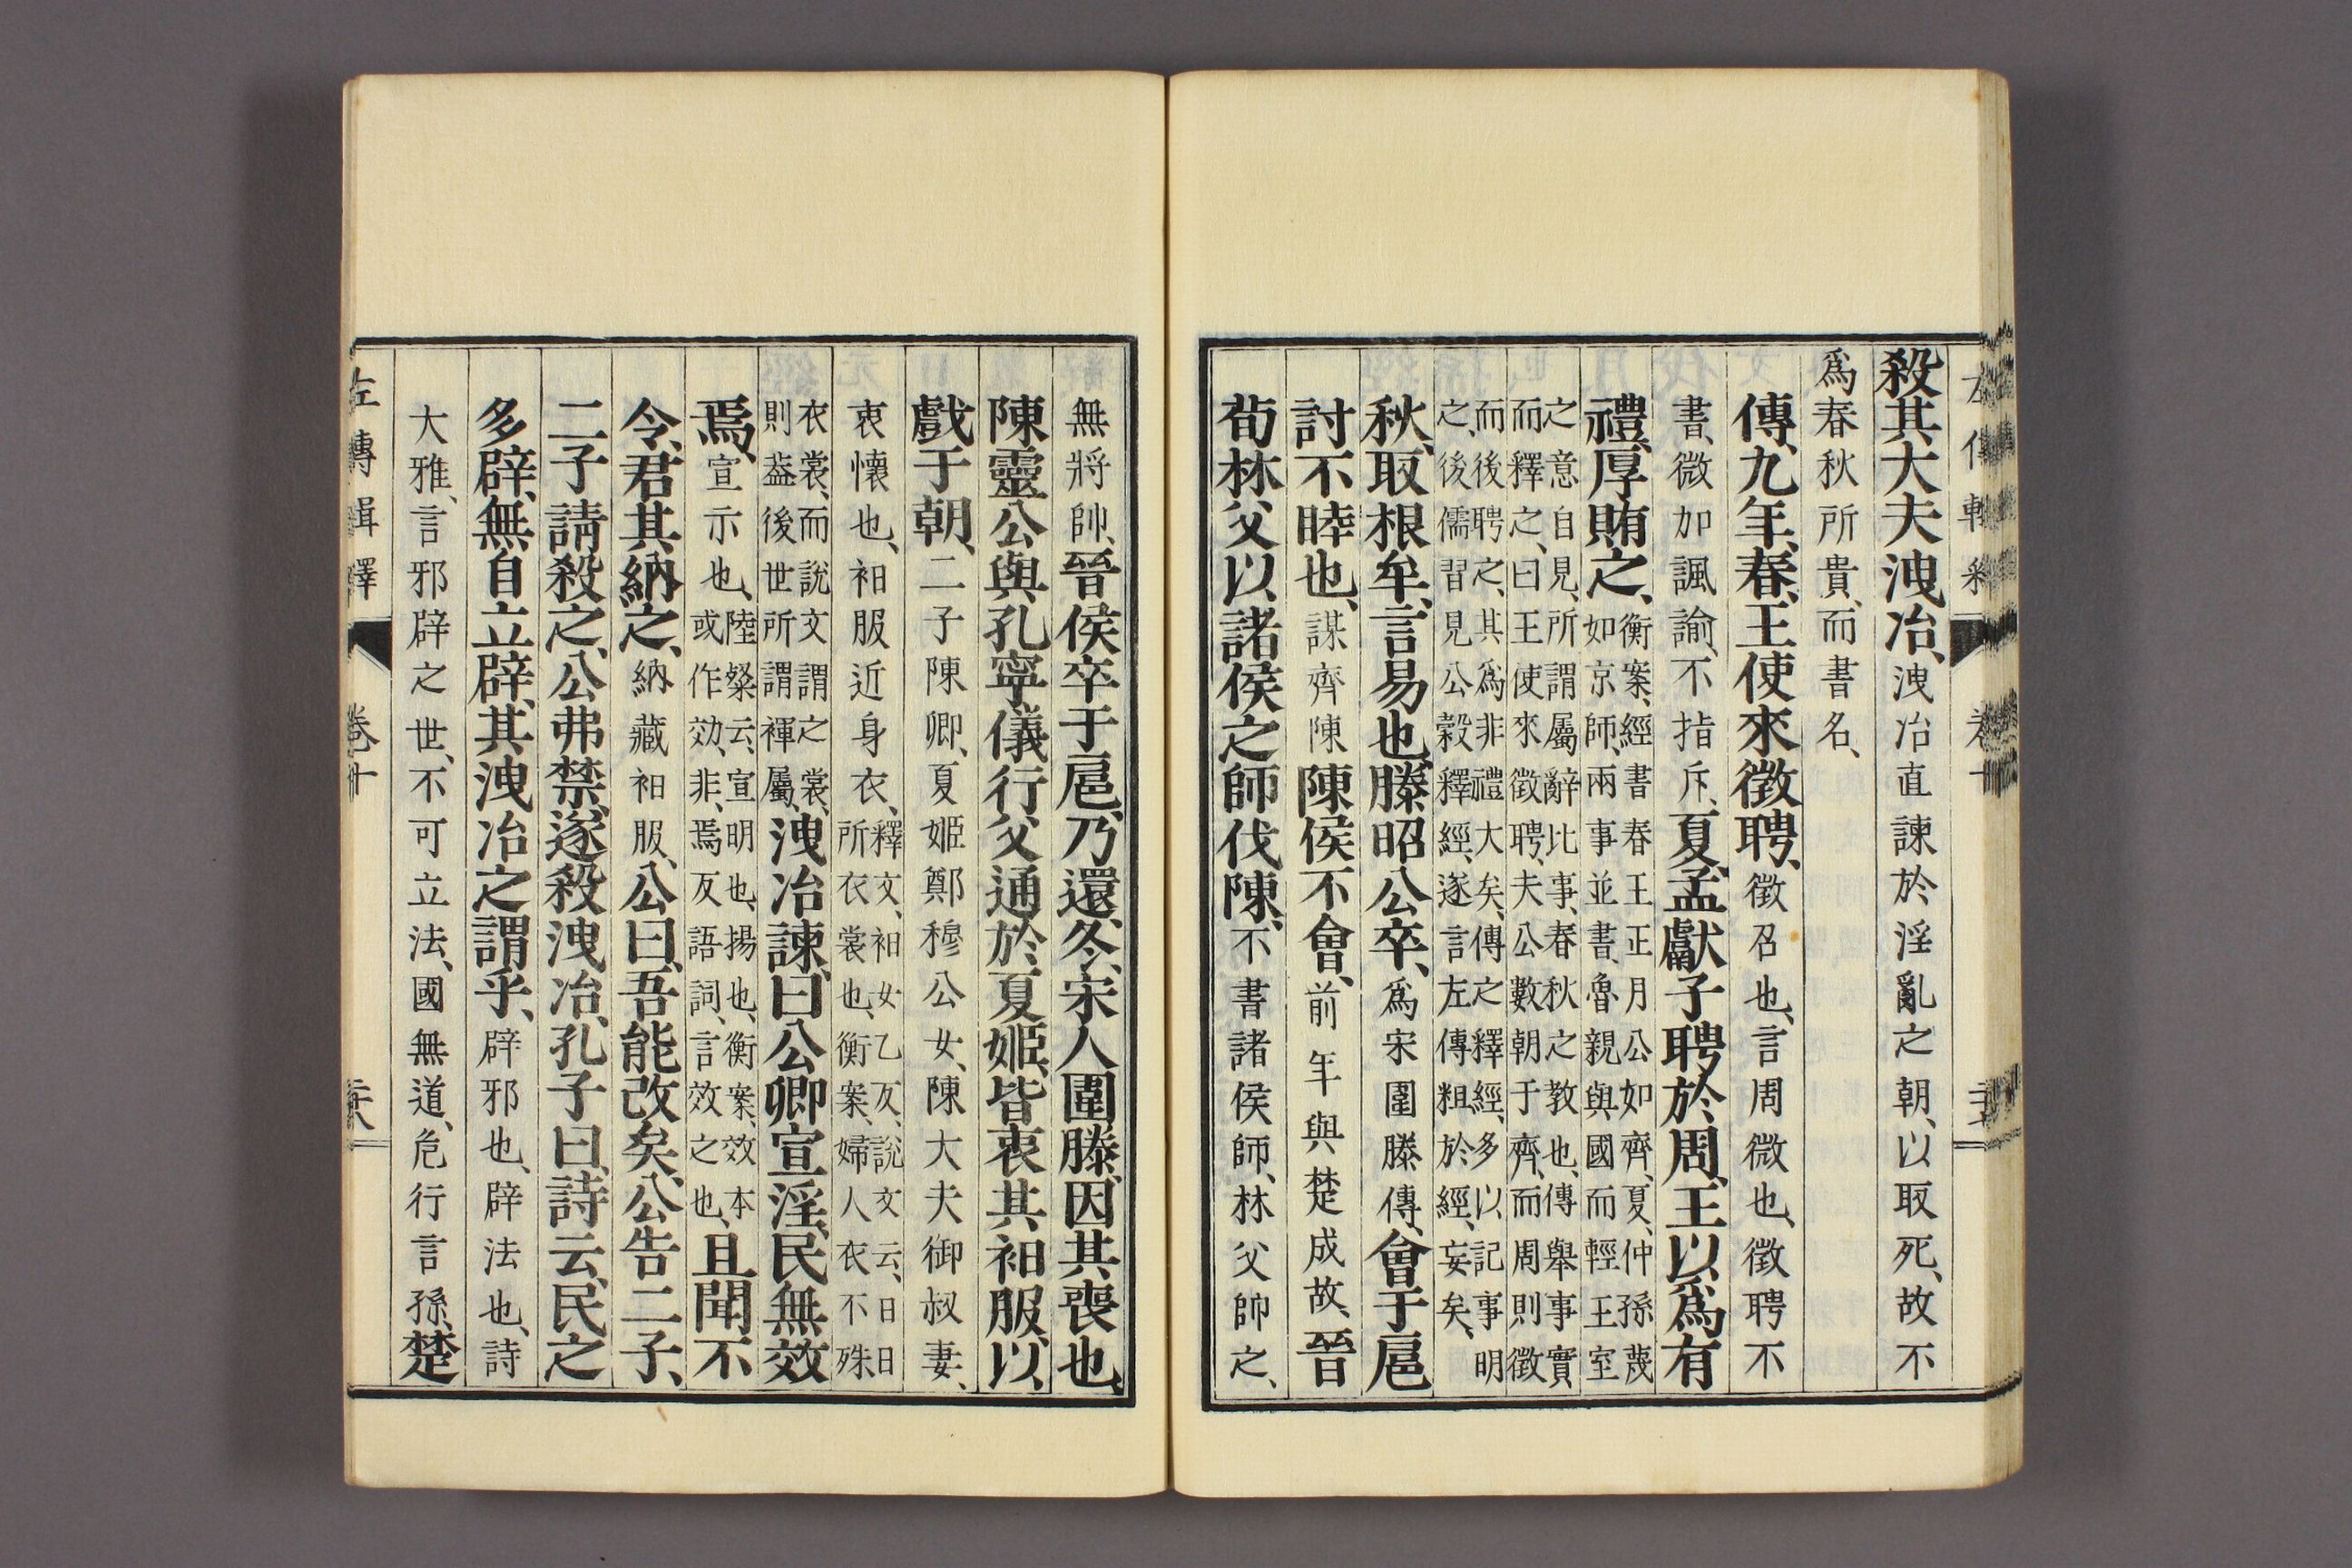 殺其大夫洩冶、洩冶直諫於淫亂之朝、以取死、故不
爲春秋所貴、而書名、
傳、九年、春、王使來徵聘、徵召也、言周微也、徵聘不
書、微加諷諭、不指斥、夏、孟獻子聘於周、王以爲有
禮、厚賄之、衡案、經書春王正月公如齊、夏、仲孫蔑如京師、兩事並書、魯親與國而輕王室
之意自見、所謂屬辭比事、春秋之教也、傳舉事實而釋之、曰王使來徵聘、夫公數朝于齊、而周則徵
而後聘之、其爲非禮大矣、傳之釋經、多以記事明之、後儒習見公穀釋經、遂言左傳粗於經、妄矣、
秋、取根牟、言易也、滕昭公卒、爲宋圍滕傳、會于扈
討不睦也、謀齊陳陳侯不會、前年與楚成故、晉
荀林父以諸侯之師伐陳、不書諸侯師、林父帥之、
無將帥、晉侯卒于扈、乃還、冬、宋人圍滕、因其喪也、
陳靈公與孔寧儀行父通於夏姬、皆衷其衵服、以
戲于朝、二子陳卿、夏姬鄭穆公女、陳大夫御叔妻、
衷懷也、衵服近身衣、釋文、衵女乙反、說文云、日日所衣裳也、衡案、婦人衣不殊
衣裳、而說文謂之裳、則葢後世所謂褌屬、洩冶諫曰、公卿宣淫、民無效
焉、宣示也、陸粲云、宣明也、揚也、衡案、效本或作効、非、焉反語詞、言效之也、且聞不
令、君其納之、納藏衵服、公曰、吾能改矣、公告二子、
二子請殺之、公弗禁、遂殺洩冶、孔子曰、詩云、民之
多辟、無自立辟、其洩冶之謂乎、辟邪也、辟法也、詩
大雅、言邪辟之世、不可立法、國無道、危行言孫、楚
左傳輯釋 卷十